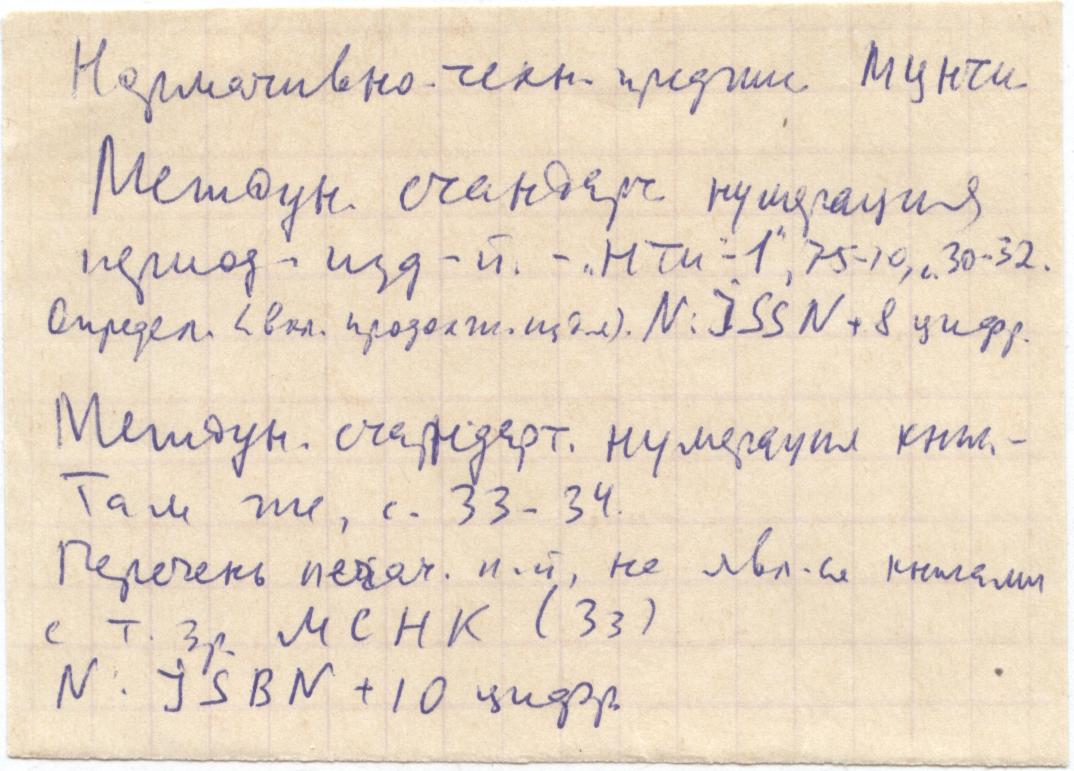 Нормативно-техн. предпис. МЦНТИ
Междун. стандарт. нумерация
период- изд-й. - „НТИ-1", 75-10, с. 30-32.
Определ. (вкл. продолж. изд.). N: ISSN + 8 цифр.
Междун. стандарт. нумерация книг. -
Там же, с. 33-34.
Перечень печат. и-й, не явл-ся книгами
с т. зр. МСНК (33)
N: ISBN + 10 цифр.